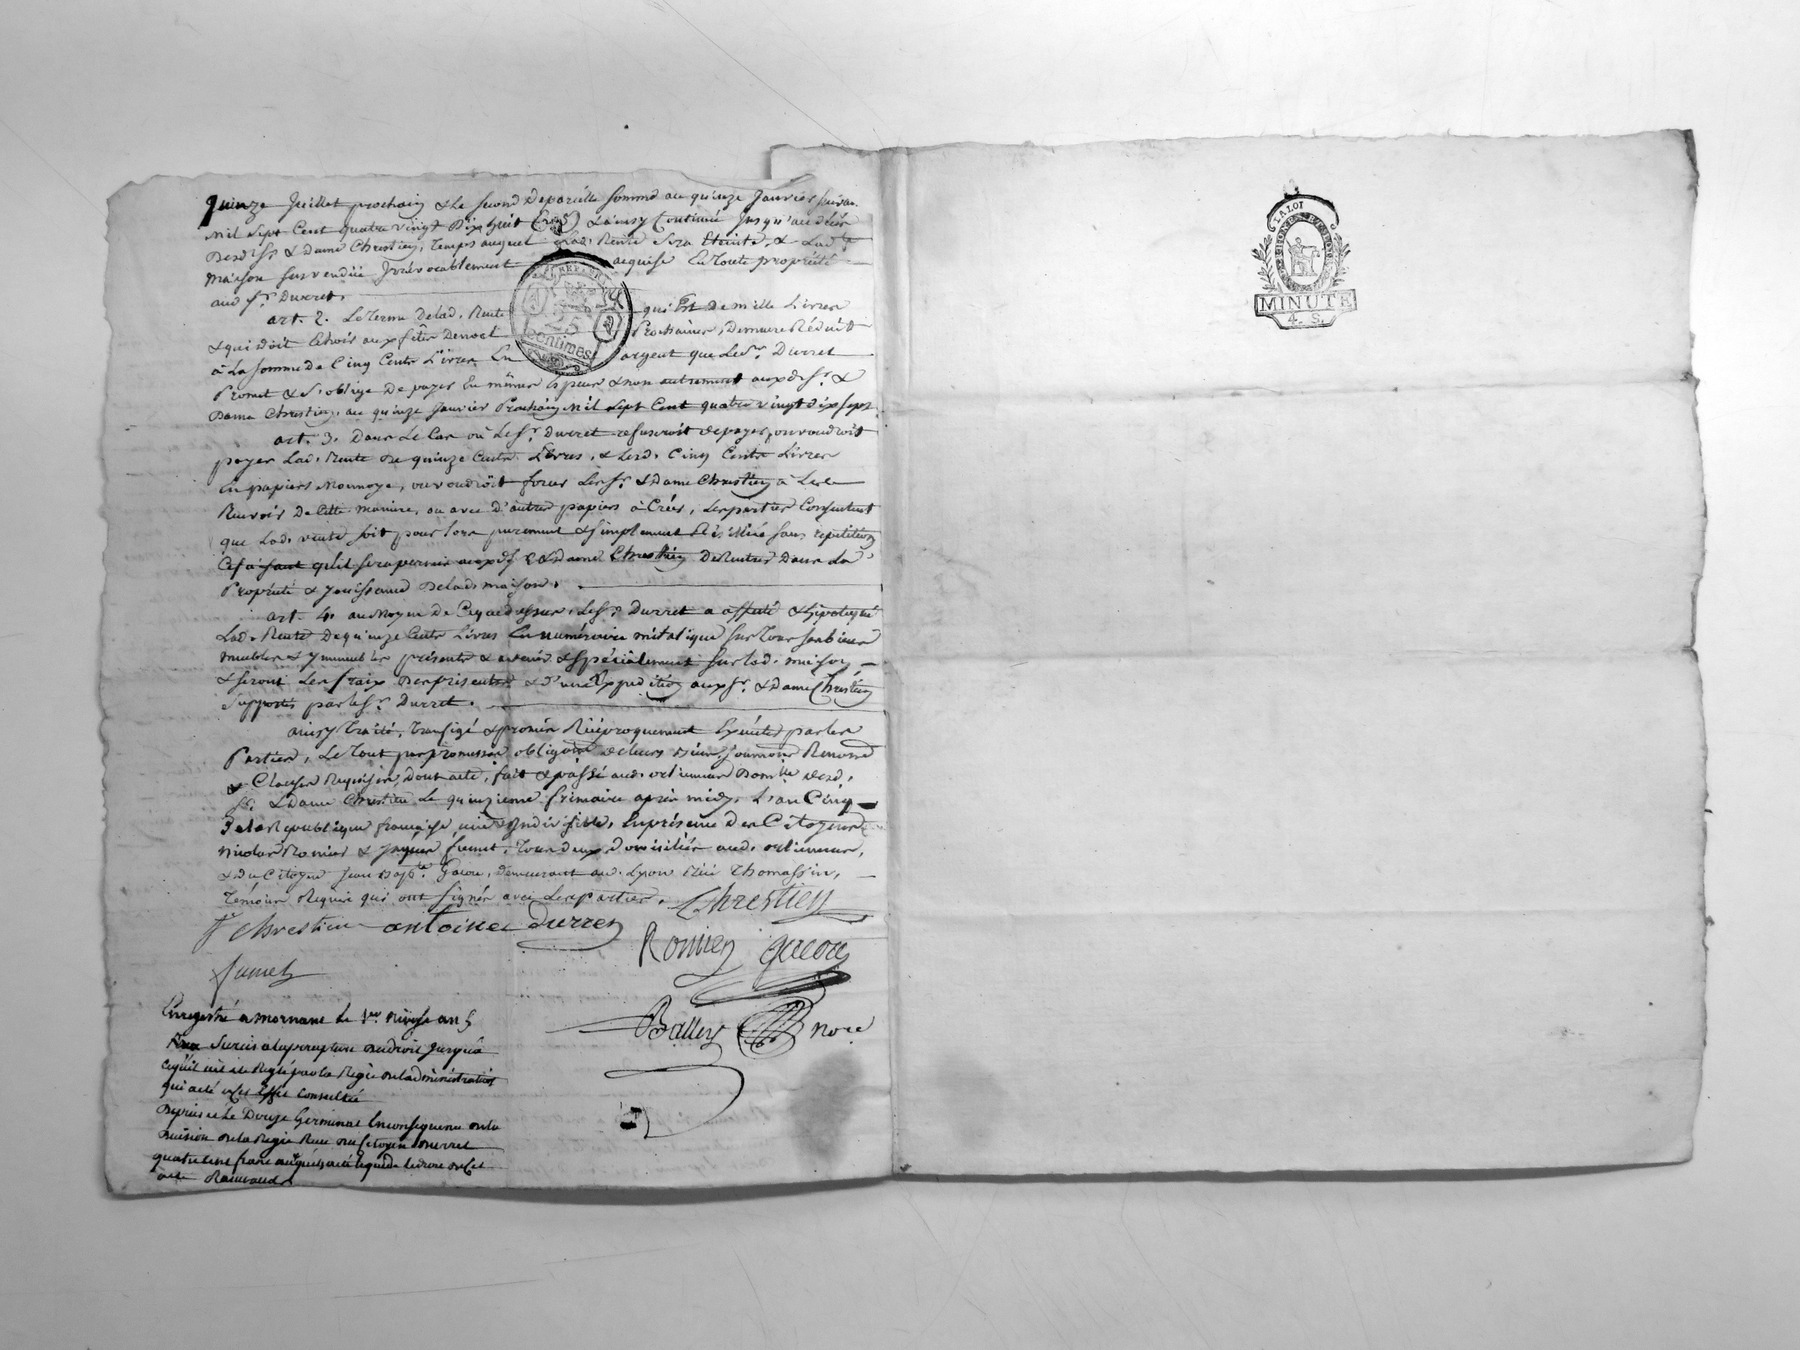 quinze Juillet prochain & le second de pareille somme au quinze Janvier suivan.
mil sept Cent quatre vingt Dix huit & ainsy Continué Jusqu'au décès
Desd. Sr. & Dame Chrestien, temps auquel lad. Rente sera Eteinte, & lad.
maison susvendüe Irrévocablement acquise En toute propriété
aud Sr. Durret.
art. 2. Le terme de lad. Rente qui Est de mille Livres
& qui doit Echoir aux fêtes de noel Prochaines, Demeure Réduit
à la somme de Cinq Cents Livres En argent que led. Sr. Durret
Promet & s'oblige De payer En mêmes Espèces & non autrement auxd. Sr. &
Dame Chrestien, au quinze Janvier Prochain Mil sept Cent quatre vingt dix sept.
art. 3. Dans Le Cas où led. Sr. Durret refuseroit de payer, ou voudroit
payer Lad. Rente de quinze Cents Livres, & lesd. Cinq Cents Livres
En papiers Monnoye, ou voudroit forcer les Sr. & Dame Chrestien à Les
Recevoir De Cette manière, ou avec D'autres papiers à Créer, les parties Consentent
que lad. vente soit pour lors purement & simplement Résiliée sans répétition
Ce faisant qu'il sera permis auxd Sr. & Dame Chrestien De Rentrer Dans la
Propriété & Jouissance De lad. maison.
art. 4. au Moyen de Ce que dessus, led. Sr. Durret a affecté & hipotequé
Lad. Rente De quinze Cents Livres En numéraire métalique sur Tous ses biens
meubles & Immeubles présents & avenir & spécialement sur lad. maison,
& seront les fraix Des présentes & d'une Expédition aux Sr. & Dame Chrestien
supportés par led. Sr. Durret.
ainsy traité, transigé & promis Réciproquement Exécuter par les
Parties, Le tout par promission obligation de leurs biens soumission Renonce
& Clauses Requises, Dont acte, fait & passé aud. orlienas Domlle desd.
Sr. & Dame Chrestien Le quinzieme frimaire après midy, L'an Cinq
De la République française, une & Indivisible, En présence des Citoyens
nicolas Romier & Jaques fumet, tous deux domiciliés aud. orlienas,
& du Citoyen Jean Bapte. Gacon, demeurant au. Lyon Rüe Thomassin,
Témoins Requis qui ont signés avec les parties. Chrestien
fe Chrestien antoine Durret
Romier gacon
fumet
Balley nore
Enregistré a mornant le 1er nivose an 5
Sursis a la perception du droit Jusqu'a
ce qu'il ait été Reglé par la Regie de l'administration
qui a été a cet Effet Consultée
Depuis et le Douze Germinal En consequence de la
Decision de la Regie Recu du Citoyen Durret
quatre cent francs auxquels a été liquidé le droit de Cet
acte Raimond
25
Centimes
LA LOI
MINUTE
4. S.